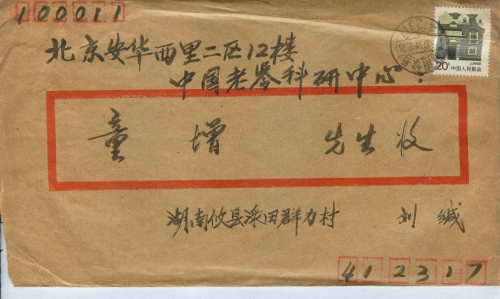 100011
北京安华西里二区12楼
中国老龄科研中心:
童 增 先生收
湖南攸县渌田群力村 刘 缄
412317
20分 中国人民邮政